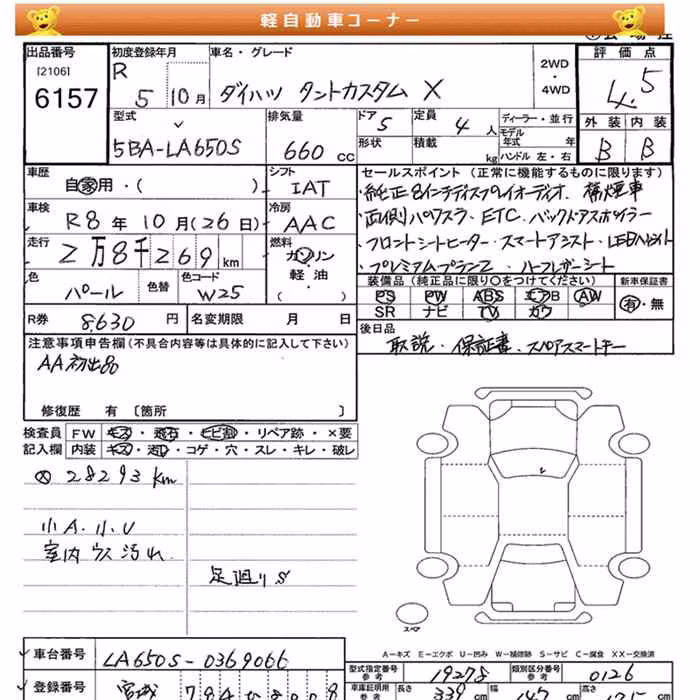 軽自動車コーナー
出品番号
[2106]
6157
初度登録年月
R 5 10月
車名・グレード
ダイハツ タントカスタム X
2WD
・
4WD
評価点
4.5
外装 内装
B B
型式
5BA-LA650S
排気量
660 cc
ドア 5
形状
定員 4 人
積載 kg
ディーラー・並行
モデル年式 年
ハンドル 左・右
車歴
自家用・( )
シフト
IAT
車検
R8年 10月(26日)
冷房
AAC
走行
2万8千269km
燃料
ガソリン
軽・油
( )
色
パール
色替
色コード
W25
R券 8,630 円
名変期限 月 日
セールスポイント(正常に機能するものに限ります)
・純正8インチディスプレイオーディオ、禁煙車
・両側パワスラ・ETC・バックドアスポイラー
・フロントシートヒーター・スマートアシスト・LEDヘッドライト
・プレミアムプランZ・ハーフレザーシート
装備品(純正品に限り○をつけてください)
新車保証書
PS PW ABS エアB AW
SR ナビ TV カワ
有・無
後日品
取説・保証書・スペアスマートキー
注意事項申告欄(不具合内容等は具体的に記入して下さい)
AA初出品
修復歴 有 〔箇所 〕
検査員 FW キズ・飛石・ヒビ割・リペア跡・×要
記入欄 内装 キズ・汚れ・コゲ・穴・スレ・キレ・破レ
28293km
小A.小U
室内ウス汚れ
足廻りS
スペア
A-キズ E-エクボ U-凹み W-補修跡 S-サビ C-腐食 XX-交換済
車台番号 LA650S-0369066
型式指定番号
参考
19278
類別区分番号
参考
0126
登録番号 宮城
車庫証明用
参考
長さ 339 cm 幅 147 cm 高さ cm